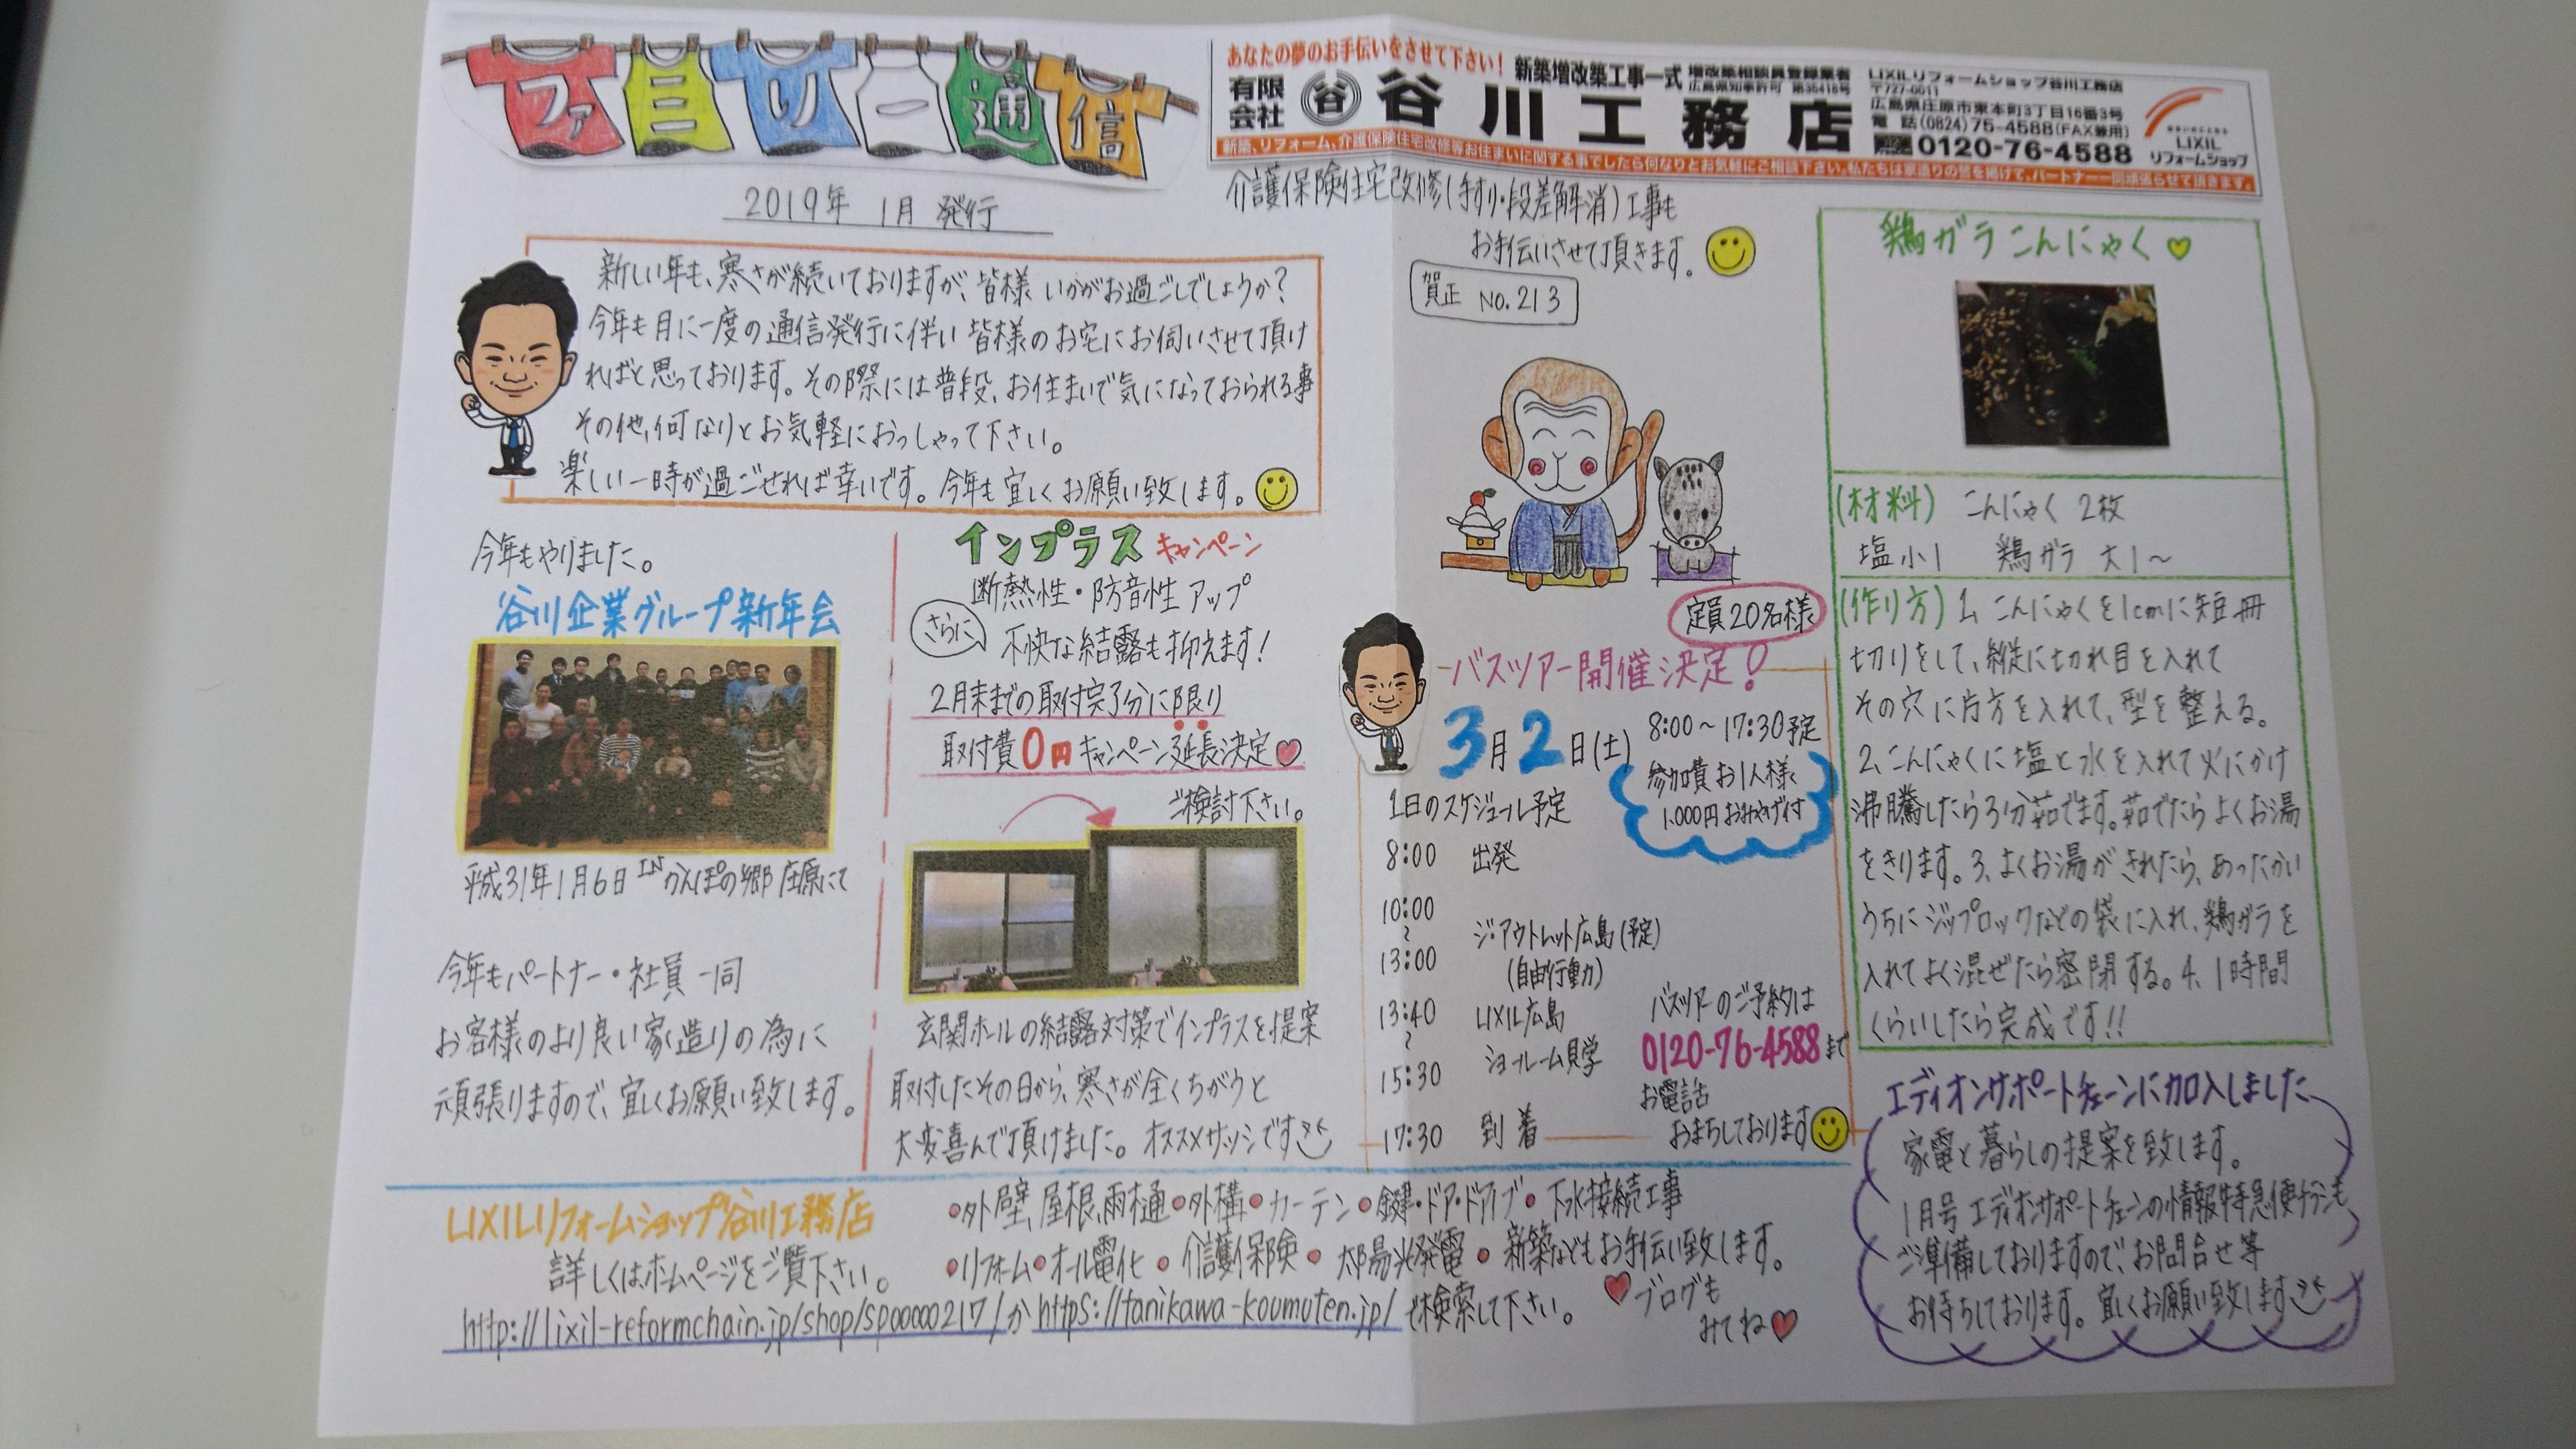 ファミリー通信
2019年 1月 発行
あなたの夢のお手伝いをさせて下さい!
新築増改築工事一式
増改築相談員登録業者
広島県知事許可 第35418号
有限会社 谷 谷川工務店
LIXILリフォームショップ谷川工務店
〒727-0011
広島県庄原市東本町3丁目16番3号
電話(0824)75-4588(FAX兼用)
0120-76-4588
LIXIL
リフォームショップ
新築、リフォーム、介護保険住宅改修等お住まいに関する事でしたら何なりとお気軽にご相談下さい。私たちは家造りの誓を掲げて、パートナー一同頑張らせて頂きます。
介護保険住宅改修(手すり・段差解消)工事も
お手伝いさせて頂きます。
賀正 No.213
新しい年も、寒さが続いておりますが、皆様いかがお過ごしでしょうか?
今年も月に一度の通信発行に伴い皆様のお宅にお伺いさせて頂け
ればと思っております。その際には普段、お住まいで気になっておられる事
その他、何なりとお気軽におっしゃって下さい。
楽しい一時が過ごせれば幸いです。今年も宜しくお願い致します。
今年もやりました。
谷川企業グループ新年会
平成31年1月6日 IN かんぽの郷 庄原にて
今年もパートナー・社員一同
お客様のより良い家造りの為に
頑張りますので、宜しくお願い致します。
インプラス キャンペーン
断熱性・防音性アップ
さらに 不快な結露も抑えます!
2月末までの取付完了分に限り
取付費0円キャンペーン延長決定
ご検討下さい。
玄関ホールの結露対策でインプラスを提案
取付したその日から、寒さが全くちがうと
大変喜んで頂けました。オススメサッシです
定員20名様
バスツアー開催決定!
3月2日(土)
8:00〜17:30予定
参加費お1人様
1,000円おみやげ付
1日のスケジュール予定
8:00 出発
10:00
〜 ジ・アウトレット広島(予定)
13:00 (自由行動)
13:40 LIXIL広島
〜 ショールーム見学
15:30
17:30 到着
バスツアーのご予約は
0120-76-4588まで
お電話
おまちしております
鶏ガラこんにゃく
(材料) こんにゃく 2枚
塩小1 鶏ガラ 大1〜
(作り方) 1、こんにゃくを1cmに短冊
切りをして、縦に切れ目を入れて
その穴に片方を入れて、型を整える。
2、こんにゃくに塩と水を入れて火にかけ
沸騰したら3分茹でます。茹でたらよくお湯
をきります。3、よくお湯がきれたら、あったかい
うちにジップロックなどの袋に入れ、鶏ガラを
入れてよく混ぜたら密閉する。4、1時間
くらいしたら完成です!!
エディオンサポートチェーンに加入しました
家電と暮らしの提案を致します。
1月号エディオンサポートチェーンの情報特急便チラシも
ご準備しておりますので、お問合せ等
お待ちしております。宜しくお願い致します
LIXILリフォームショップ谷川工務店
詳しくはホームページをご覧下さい。
・外壁、屋根、雨樋・外構・カーテン・鍵・ドア・ドアノブ・下水接続工事
・リフォーム・オール電化・介護保険・太陽光発電・新築などもお手伝い致します。
http://lixil-reformchain.jp/shop/sp00000217/か https://tanikawa-koumuten.jp/で検索して下さい。
ブログも
みてね